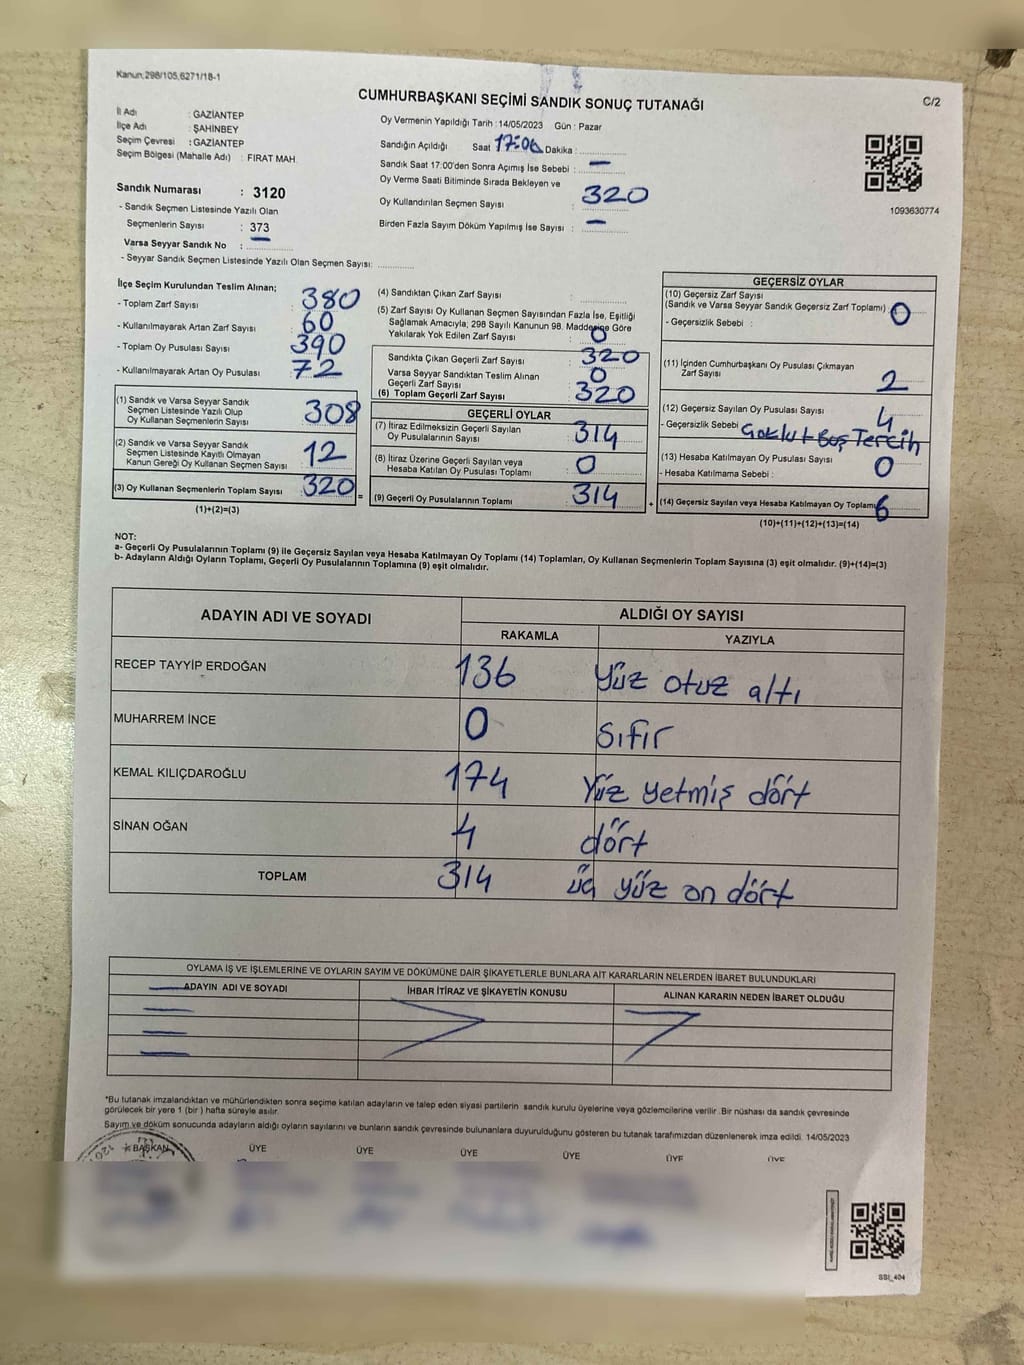 Kanun;298/105,6271/18-1
CUMHURBAŞKANI SEÇİMİ SANDIK SONUÇ TUTANAĞI
C/2
İl Adı : GAZİANTEP
İlçe Adı : ŞAHİNBEY
Seçim Çevresi : GAZİANTEP
Seçim Bölgesi (Mahalle Adı) : FIRAT MAH.
Oy Vermenin Yapıldığı Tarih : 14/05/2023 Gün : Pazar
Sandığın Açıldığı Saat 17:06 Dakika :
Sandık Saat 17:00'den Sonra Açımış İse Sebebi : —
Oy Verme Saati Bitiminde Sırada Bekleyen ve
Oy Kullandırılan Seçmen Sayısı : 320
Birden Fazla Sayım Döküm Yapılmış İse Sayısı : —
1093630774
Sandık Numarası : 3120
- Sandık Seçmen Listesinde Yazılı Olan
Seçmenlerin Sayısı : 373
Varsa Seyyar Sandık No : —
- Seyyar Sandık Seçmen Listesinde Yazılı Olan Seçmen Sayısı:
İlçe Seçim Kurulundan Teslim Alınan;
- Toplam Zarf Sayısı : 380
- Kullanılmayarak Artan Zarf Sayısı : 60
- Toplam Oy Pusulası Sayısı : 390
- Kullanılmayarak Artan Oy Pusulası : 72
(1) Sandık ve Varsa Seyyar Sandık
Seçmen Listesinde Yazılı Olup
Oy Kullanan Seçmenlerin Sayısı : 308
(2) Sandık ve Varsa Seyyar Sandık
Seçmen Listesinde Kayıtlı Olmayan
Kanun Gereği Oy Kullanan Seçmen Sayısı : 12
(3) Oy Kullanan Seçmenlerin Toplam Sayısı : 320 =
(1)+(2)=(3)
(4) Sandıktan Çıkan Zarf Sayısı :
(5) Zarf Sayısı Oy Kullanan Seçmen Sayısından Fazla İse, Eşitliği
Sağlamak Amacıyla; 298 Sayılı Kanunun 98. Maddesine Göre
Yakılarak Yok Edilen Zarf Sayısı : 0
Sandıkta Çıkan Geçerli Zarf Sayısı : 320
Varsa Seyyar Sandıktan Teslim Alınan
Geçerli Zarf Sayısı : 0
(6) Toplam Geçerli Zarf Sayısı : 320
GEÇERLİ OYLAR
(7) İtiraz Edilmeksizin Geçerli Sayılan
Oy Pusulalarının Sayısı : 314
(8) İtiraz Üzerine Geçerli Sayılan veya
Hesaba Katılan Oy Pusulası Toplamı : 0
(9) Geçerli Oy Pusulalarının Toplamı : 314 +
GEÇERSİZ OYLAR
(10) Geçersiz Zarf Sayısı
(Sandık ve Varsa Seyyar Sandık Geçersiz Zarf Toplamı) : 0
- Geçersizlik Sebebi :
(11) İçinden Cumhurbaşkanı Oy Pusulası Çıkmayan
Zarf Sayısı : 2
(12) Geçersiz Sayılan Oy Pusulası Sayısı : 4
- Geçersizlik Sebebi Boş Tercih
(13) Hesaba Katılmayan Oy Pusulası Sayısı : 0
- Hesaba Katılmama Sebebi :
(14) Geçersiz Sayılan veya Hesaba Katılmayan Oy Toplamı 6
(10)+(11)+(12)+(13)=(14)
NOT:
a- Geçerli Oy Pusulalarının Toplamı (9) ile Geçersiz Sayılan veya Hesaba Katılmayan Oy Toplamı (14) Toplamları, Oy Kullanan Seçmenlerin Toplam Sayısına (3) eşit olmalıdır. (9)+(14)=(3)
b- Adayların Aldığı Oyların Toplamı, Geçerli Oy Pusulalarının Toplamına (9) eşit olmalıdır.
ADAYIN ADI VE SOYADI ALDIĞI OY SAYISI
RAKAMLA YAZIYLA
RECEP TAYYİP ERDOĞAN 136 Yüz otuz altı
MUHARREM İNCE 0 Sıfır
KEMAL KILIÇDAROĞLU 174 Yüz yetmiş dört
SİNAN OĞAN 4 dört
TOPLAM 314 üç yüz on dört
OYLAMA İŞ VE İŞLEMLERİNE VE OYLARIN SAYIM VE DÖKÜMÜNE DAİR ŞİKAYETLERLE BUNLARA AİT KARARLARIN NELERDEN İBARET BULUNDUKLARI
ADAYIN ADI VE SOYADI İHBAR İTİRAZ VE ŞİKAYETİN KONUSU ALINAN KARARIN NEDEN İBARET OLDUĞU
*Bu tutanak imzalandıktan ve mühürlendikten sonra seçime katılan adayların ve talep eden siyasi partilerin sandık kurulu üyelerine veya gözlemcilerine verilir .Bir nüshası da sandık çevresinde
görülecek bir yere 1 (bir ) hafta süreyle asılır.
Sayım ve döküm sonucunda adayların aldığı oyların sayılarını ve bunların sandık çevresinde bulunanlara duyurulduğunu gösteren bu tutanak tarafımızdan düzenlenerek imza edildi. 14/05/2023
BAŞKAN ÜYE ÜYE ÜYE ÜYE ÜYE ÜYE
SSI_404